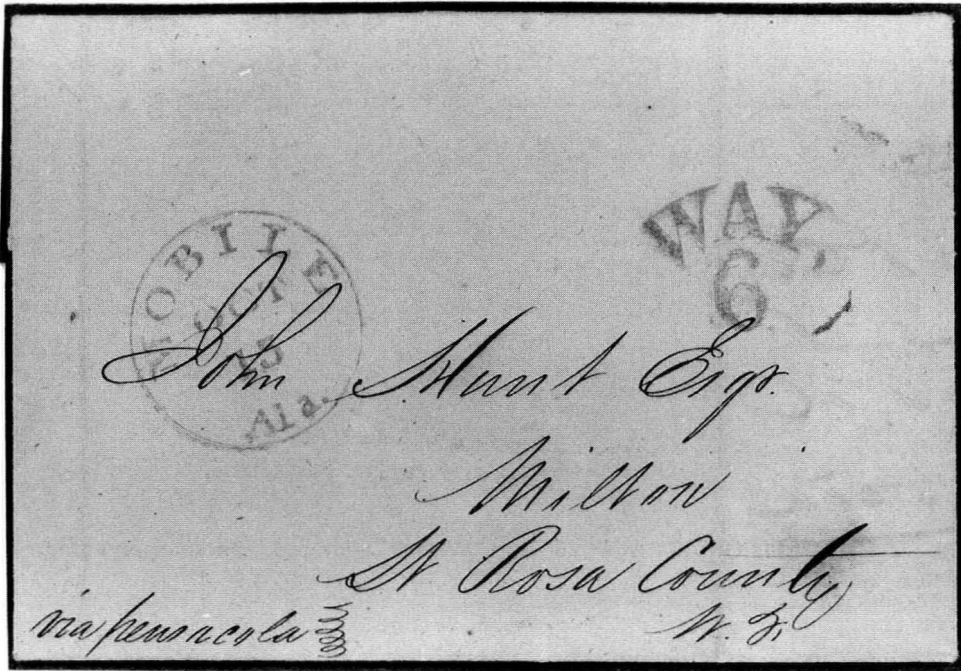 WAY,
6
MOBILE
OCT
15
Ala.
John Hunt Esqr.
Milton
St Rosa County
W. F.
via pensacola